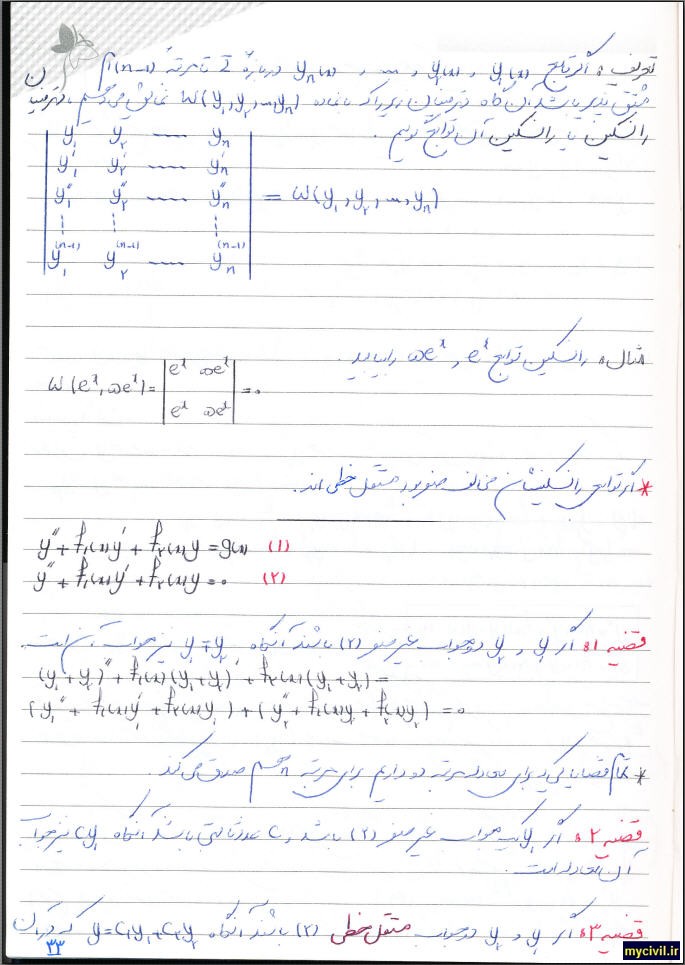 تعریف : اگر توابع y₁(x) , y₂(x) , ... , yₙ(x) در بازهٔ I تا مرتبهٔ (n-1) اُم
مشتق پذیر باشد، آن گاه دترمینان زیر را که با نماد W(y₁,y₂,...,yₙ) نمایش می دهیم ، دترمینان
رانسکین یا رانسکین آن توابع گوئیم .
| y₁ y₂ ..... yₙ |
| y₁′ y₂′ ..... yₙ′ |
| y₁″ y₂″ ..... yₙ″ | = W(y₁,y₂,...,yₙ)
| ⋮ ⋮ ⋮ |
| y₁⁽ⁿ⁻¹⁾ y₂⁽ⁿ⁻¹⁾ ..... yₙ⁽ⁿ⁻¹⁾ |
مثال : رانسکین توابع eˣ , ۵eˣ را بیابید .
W(eˣ,۵eˣ) = | eˣ ۵eˣ |
| eˣ ۵eˣ | = ۰
* اگر توابعی رانسکینشان مخالف صفر بود مستقل خطی اند.
y″ + f₁(x)y′ + f₂(x)y = g(x) (۱)
y″ + f₁(x)y′ + f₂(x)y = ۰ (۲)
قضیه ۱ : اگر y₁ و y₂ دو جواب غیر صفر (۲) باشند آنگاه y₁+y₂ نیز جواب آن است.
(y₁+y₂)″ + f₁(x)(y₁+y₂)′ + f₂(x)(y₁+y₂) =
(y₁″ + f₁(x)y₁′ + f₂(x)y₁) + (y₂″ + f₁(x)y₂′ + f₂(x)y₂) = ۰
* تمام قضایایی که برای معادله مرتبه دو داریم برای مرتبه n هم صدق می کند .
قضیه ۲ : اگر y₁ یک جواب غیر صفر (۲) باشد و C عدد ثابتی باشد آنگاه Cy₁ نیز جواب
آن معادله است .
قضیه ۳ : اگر y₁ و y₂ دو جواب مستقل خطی (۲) باشند آنگاه y=C₁y₁+C₂y₂ که در آن
۳۳
mycivil.ir